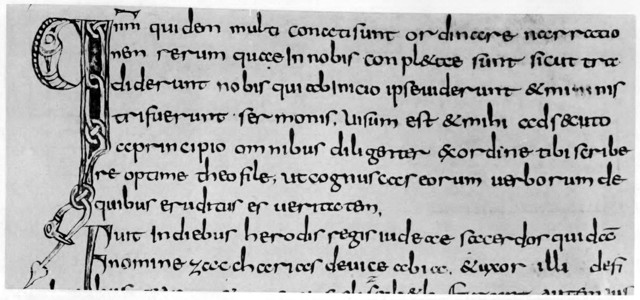 Qnm̄ quidem multi conati sunt ordinare narratio
nem rerum quae In nobis conpletae sunt sicut tra
diderunt nobis qui ab inicio ipse uiderunt & minis
tri fuerunt sermonis. uisum est & mihi adsecuto
a principio omnibus diligenter ex ordine tibi scribe
re optime theofile, ut cognuscas eorum uerborum de
quibus eruditus es ueritatem,
Fuit In diebus herodis regis iudeae sacerdos quidā
nomine zacharias de uice abia. & uxor illi de fi